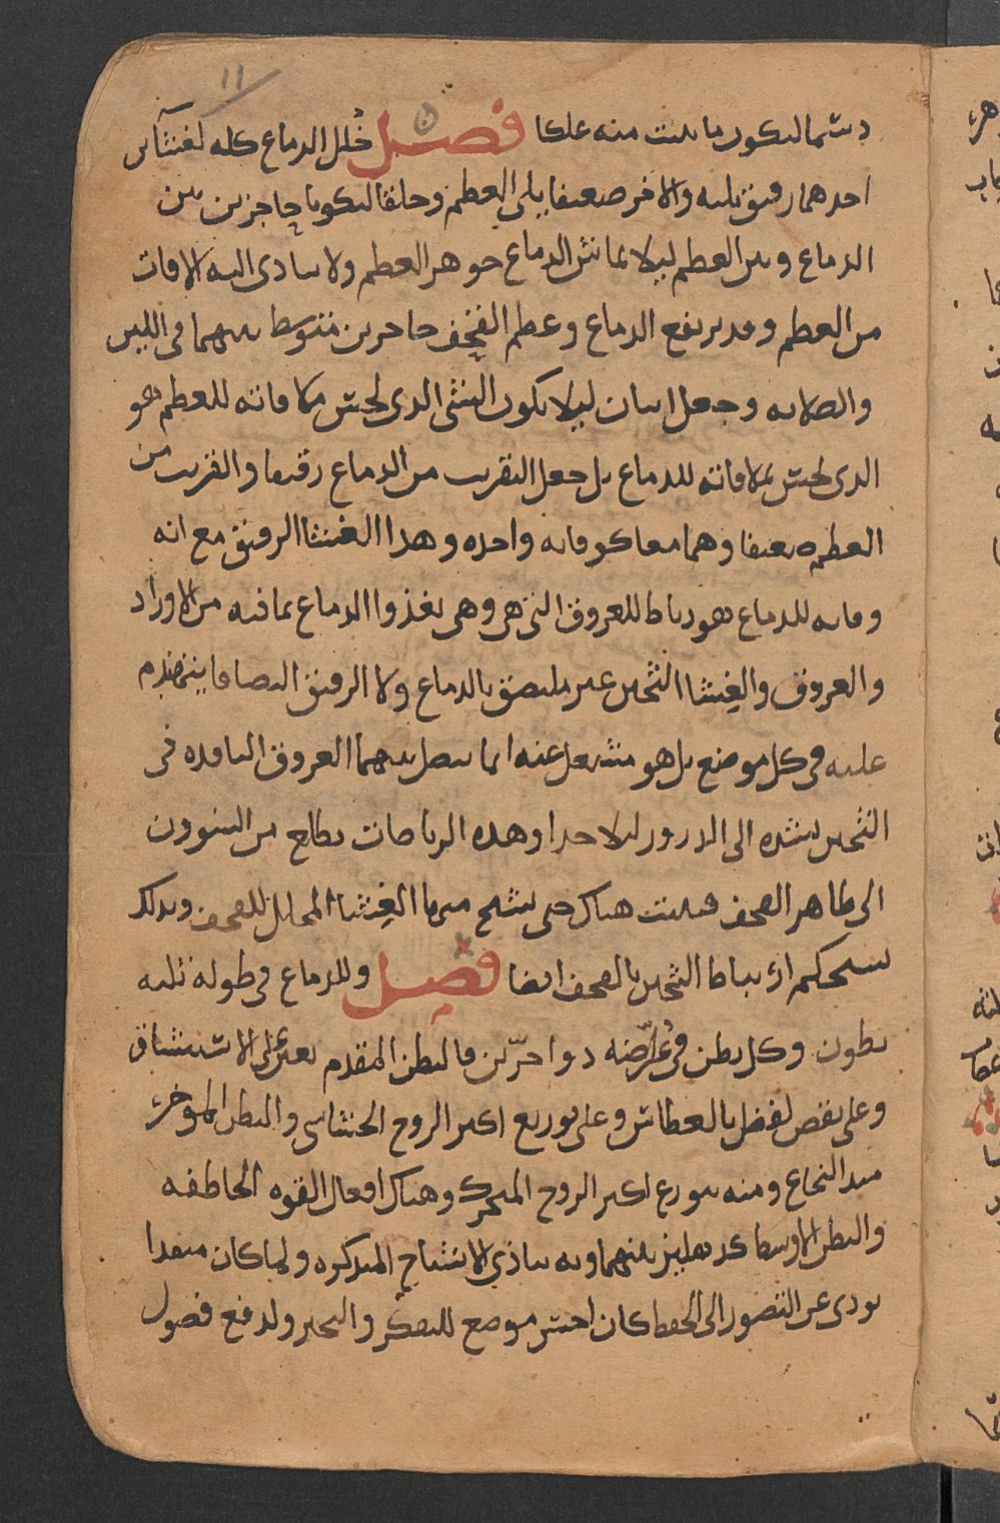 ١١
دسما ليكون ما ينبت منه علكا فصل خلل الدماع كله لغشآاين
احدهما رقيق يليه والاخر صفيقا يلي العظم وخلقا ليكونا حاجزين بين
الدماع وبين العظم ليلا يماس الدماع جوهر العظم ولا يتادى اليه الافات
من العظم وقد يرتفع الدماع وعظم القحف حاجزين متوسط بينهما فى اللين
والصلابه وجعل اثنان ليلا يكون الشي الذى يحسن ملاقاته للعظم هو
الذى يحسن ملاقاته للدماع بل جعل القريب من الدماع رقيقا والقريب من
العظم صفيقا وهما معا كوقايه واحده وهدا الغشا الرقيق مع انه
وقايه للدماع فهو رباط للعروق التى وهى تغذوا الدماع بما فيه من الاوراد
والعروق والغِشا الثخين غير ملتصق بالدماع ولا الرقيق التصاقا يتهندم
عليه فى كل موضع بل هو مستقل عنه انما يصل بينهما العروق النافده فى
الثخين يشده الى الدروز ليلا وهده الرباطات تطلع من الشوون
الى ظاهر القحف فتنبت هناك حتى ينتسج منها الغِشا المجلل للقحف وبدلك
يستحكم ارتباط الثخين بالقحف ايضا فصل وللدماع فى طوله ثلثه
بطون وكل بطن فى عرضه دوا جزّين فالبطن المقدم يعين على الاستنشاق
وعلى نفض الفضل بالعطاس وعلى توزيع اكثر الروح الحساس والبطن الموخر
مبدا النخاع ومنه يتوزع اكثر الروح المتحرك وهناك افعال القوه الحافظه
والبطن الاوسط كدهليز بينهما وبه يتاذي الاشباح المتدكره ولما كان منفدا
يودى عن التصور الى الحفظ كان احسن موضع للتفكر والتخير ولدفع فصول